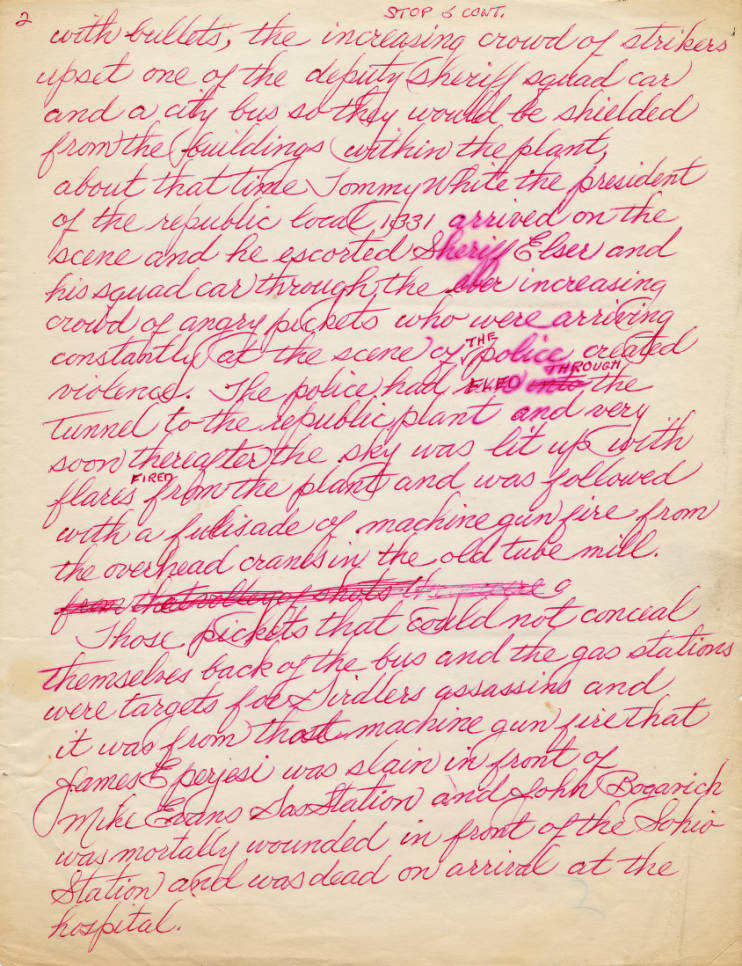 2
STOP 6 CONT.
with bullets, the increasing crowd of strikers
upset one of the deputy sheriff squad car
and a city bus so they would be shielded
from the buildings within the plant,
about that time Tommy White the president
of the republic local 1331 arrived on the
scene and he escorted Sheriff Elser and
his squad car through the ever increasing
crowd of angry pickets who were arriving
constantly at the scene of THE police created
violence. The police had FLED into THROUGH the
tunnel to the republic plant and very
soon thereafter the sky was lit up with
flares FIRED from the plant and was followed
with a fulisade of machine gun fire from
the overhead cranes in the old tube mill.
from that volley of shots there were a
Those pickets that could not conceal
themselves back of the bus and the gas stations
were targets for Girdlers assassins and
it was from that machine gun fire that
James Eperjesi was slain in front of
Mike Evans Gas Station and John Bogavich
was mortally wounded in front of the Sohio
Station and was dead on arrival at the
hospital.